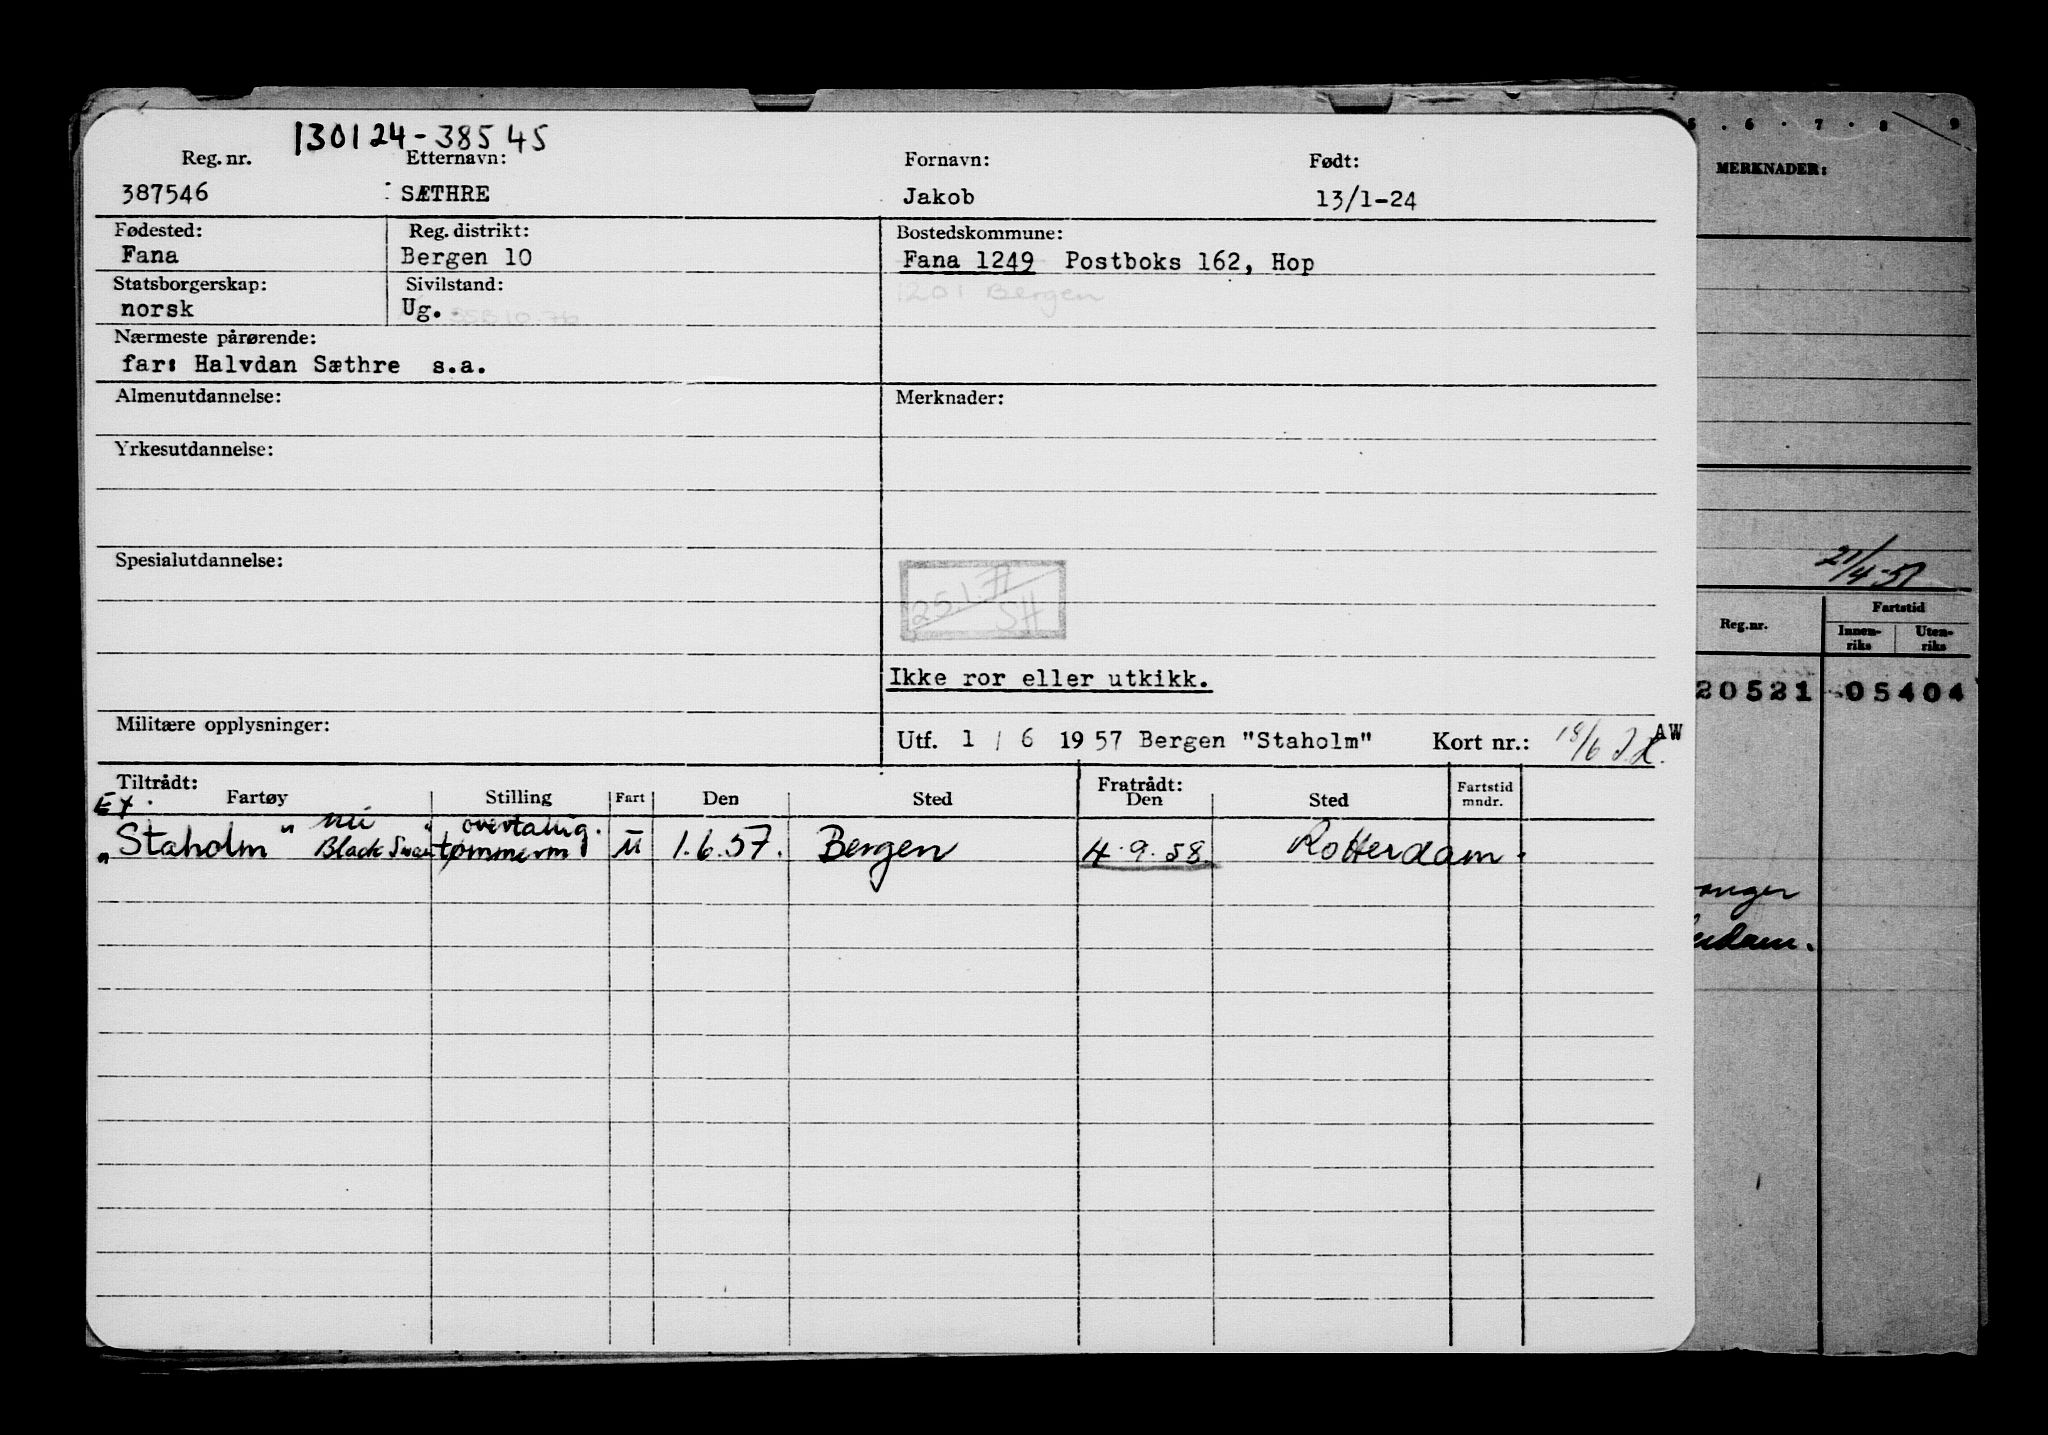 130124-38545
Reg. nr. Etternavn: Fornavn: Født:
387546 SÆTHRE Jakob 13/1-24
Fødested: Reg. distrikt: Bostedskommune:
Fana Bergen 10 Fana 1249 Postboks 162, Hop
Statsborgerskap: Sivilstand: 1201 Bergen
norsk Ug.
Nærmeste pårørende:
far: Halvdan Sæthre s.a.
Almenutdannelse: Merknader:
Yrkesutdannelse:
Spesialutdannelse:
25.1.77
SH
Ikke ror eller utkikk.
Militære opplysninger: Utf. 1 / 6 1957 Bergen "Staholm" Kort nr.: 18/6 AW
Tiltrådt: Fratrådt:
Fartøy Stilling Fart Den Sted Den Sted Fartstid mndr.
Ex. nu overtallig.
"Staholm" Black Swan tømmerm U 1.6.57. Bergen 4.9.58. Rotterdam.
5 . 6 . 7 . 8 9
MERKNADER:
21/4-51
Reg.nr. Fartstid
Innen-riks Uten-riks
20521 05404
anger
erdam.